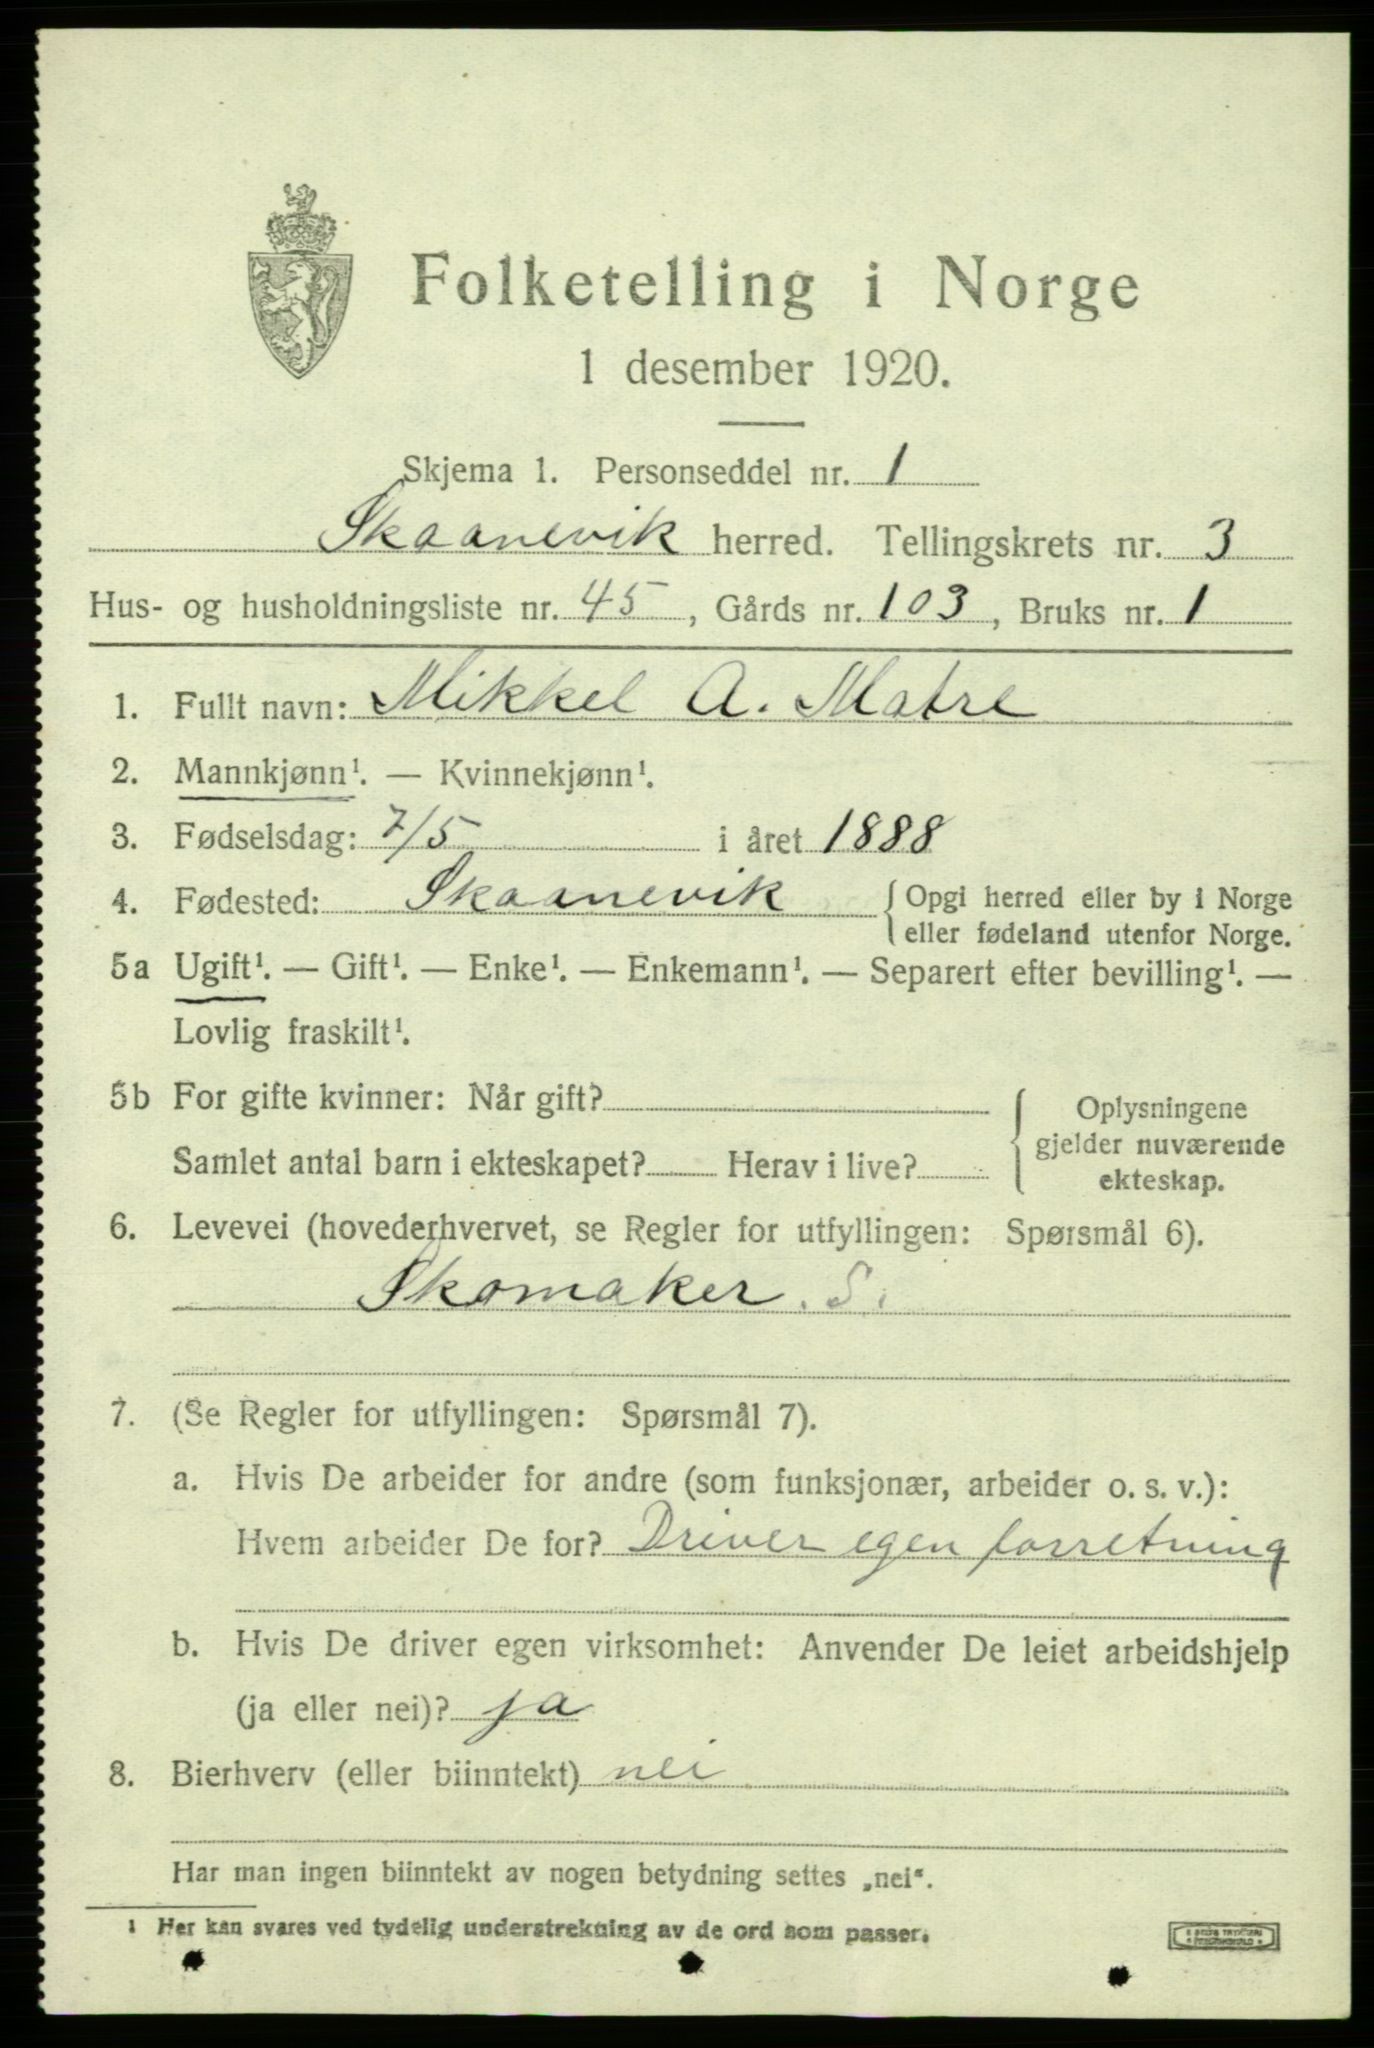 Folketelling i Norge
1 desember 1920.
Skjema 1. Personseddel nr. 1
Skaanevik herred. Tellingskrets nr. 3
Hus- og husholdningsliste nr. 45, Gårds nr. 103, Bruks nr. 1
1. Fullt navn: Mikkel A. Matre
2. Mannkjønn¹. — Kvinnekjønn¹.
3. Fødselsdag: 7/5 i året 1888
4. Fødested: Skaanevik { Opgi herred eller by i Norge
eller fødeland utenfor Norge.
5a Ugift¹. — Gift¹. — Enke¹. — Enkemann¹. — Separert efter bevilling¹. —
Lovlig fraskilt¹.
5b For gifte kvinner: Når gift?
Samlet antal barn i ekteskapet? Herav i live?
Oplysningene
gjelder nuværende
ekteskap.
6. Levevei (hovederhvervet, se Regler for utfyllingen: Spørsmål 6).
Skomaker. S.
7. (Se Regler for utfyllingen: Spørsmål 7).
a. Hvis De arbeider for andre (som funksjonær, arbeider o. s. v.):
Hvem arbeider De for? Driver egen forretning
b. Hvis De driver egen virksomhet: Anvender De leiet arbeidshjelp
(ja eller nei)? ja
8. Bierhverv (eller biinntekt) nei
Har man ingen biinntekt av nogen betydning settes „nei“.
1 Her kan svares ved tydelig understrekning av de ord som passer.